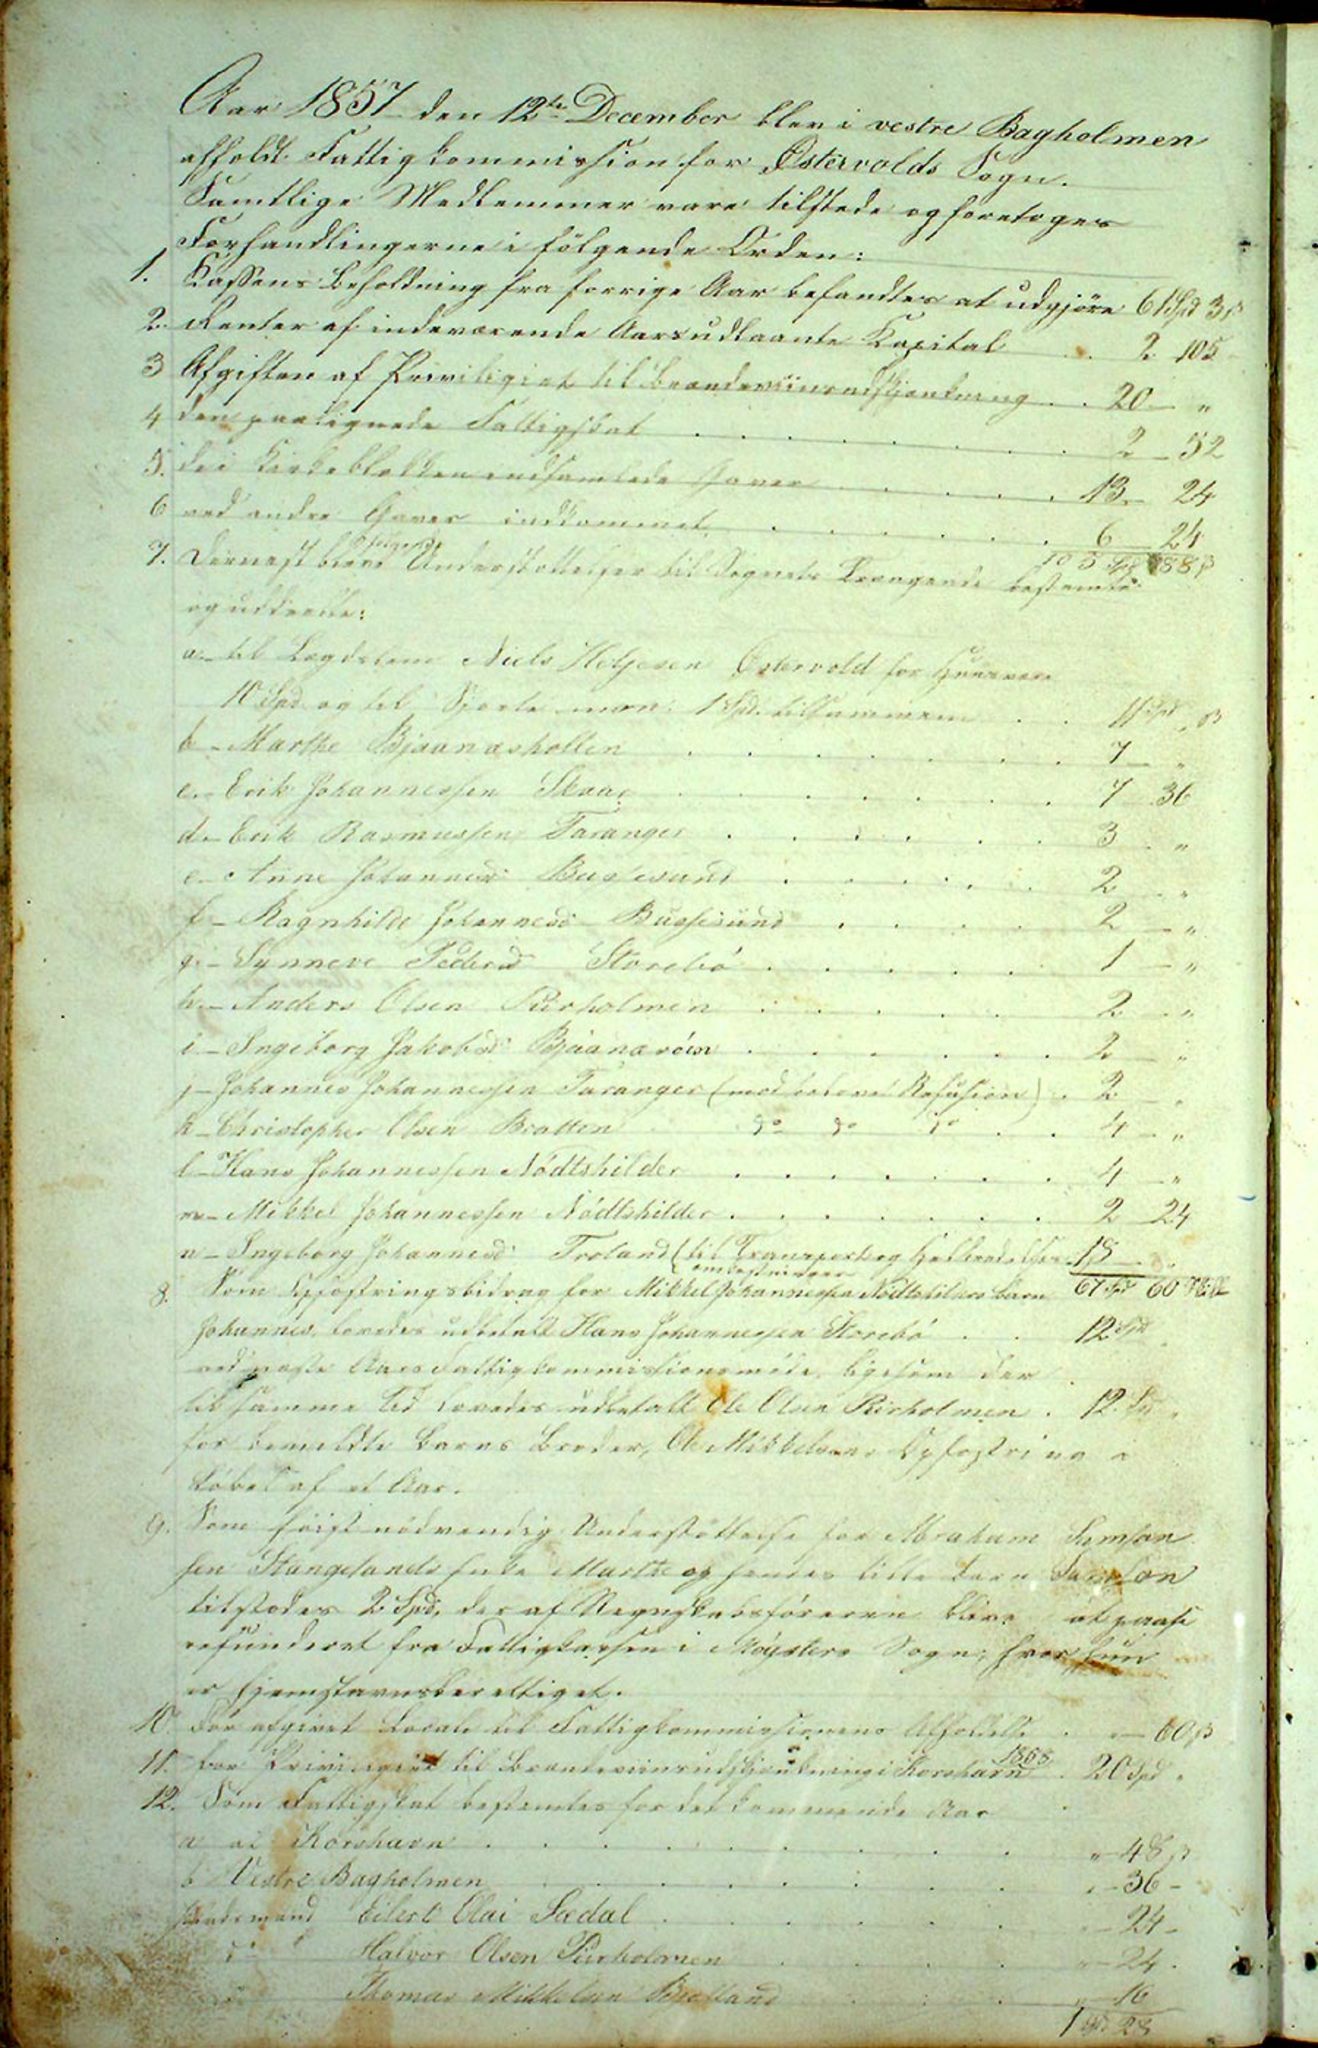 Aar 1857 den 12te December blev i vestre Bagholmen
afholdt Fattigkommission for Østervolds Sogn.
Samtlige Medlemmer vare tilstede og foretoges
Forhandlingerne i følgende Orden:
1. Kassens Beholdning fra forrige Aar befandtes at udgjöre 61 Spd 3 ß
2. Renter af indeværende Aars udlaante Kapital . . 2 105
3 Afgiften af Priviligiet til Brændeviinsudskjænkning . . 20 — "
4 den paalignede Fattigskat . . . . . 2 — 52
5. de i Kirkeblokken indsamlede Gaver . . . . 13 — 24
6 ved andre Gaver indkommet . . . . . 6 — 24
105 Spd 88 ß
7. Dernæst bleve følgende Understøttelser til Sognets Trængende bestemte
og uddeelte:
a — til Lægdslem Niels Helgesen Østervold for
10 Spd og til 1 Spd. tilsammen . . 11 Spd " ß
b — Marthe Bjaanæsholten . . . . . 7 — "
c — Erik Johannessen Skaar . . . . . 7 — 36
d — Erik Rasmussen Taranger . . . . . 3 — "
e — Anne Johannesd. Bussesund . . . . . 2 — "
f — Ragnhilde Johannesd. Bussesund . . . . 2 — "
g — Synneve Pedersd. Storebö . . . . . 1 — "
h — Anders Olsen Purholmen . . . . . 2 — "
i — Ingeborg Jakobsd. Bjaanæröen . . . . . 2 — "
j — Johannes Johannessen Taranger (mod Refusion) . 2 — "
k — Christopher Olsen Bratten do do do . . 4 — "
l — Hans Johannessen Nödtshilder . . . . . 4 — "
m — Mikkel Johannessen Nödtshilder . . . . . 2 — 24
n — Ingeborg Johannesd. Troland (til Transport og omkostninger 18 — "
67 Spd 60 Skill
8. Som Opfostringsbidrag for Mikkel Johannessen Nödtshilders Barn
Johannes, lovedes udbetalt Hans Johannessen Storebö . . 12 Spd
ved næste Aars Fattigkommissionsmöde, ligesom der
til samme Tid lovedes udbetalt Ole Olsen Purholmen . 12 Spd "
for bemeldte Barns Broder, Ole Mikkelsens Opfostring i
Löbet af et Aar.
9. Som höist nödvendig Understöttelse for Abraham Samson
sen Stangelands Enke Marthe og hendes lille Barn Samson
tilstodes 2 Spd, der af Regnskabsföreren bliver at paase
refunderet fra Fattigkassen i Møgsters Sogn, hvor hun
er hjemstavnsberettiget.
10. For afgivet Locale til Fattigkommissionens Afholdelse . " — 60 ß
11. For Priviligiet til Brændeviinsudskjænkning i Korshavn 1858 . 20 Spd "
12. Som Fattigskat bestemtes for det kommende Aar
a af Korshavn . . . . . " — 48 ß
b Vestre Bagholmen . . . . . " — 36 —
Strandmand Eilert Olai Sædal . . . . . " — 24 —
do Halvor Olsen Purholmen . . . . " — 24 .
Thomas Mikkelsen . . . . " — 16
1 Spd 28